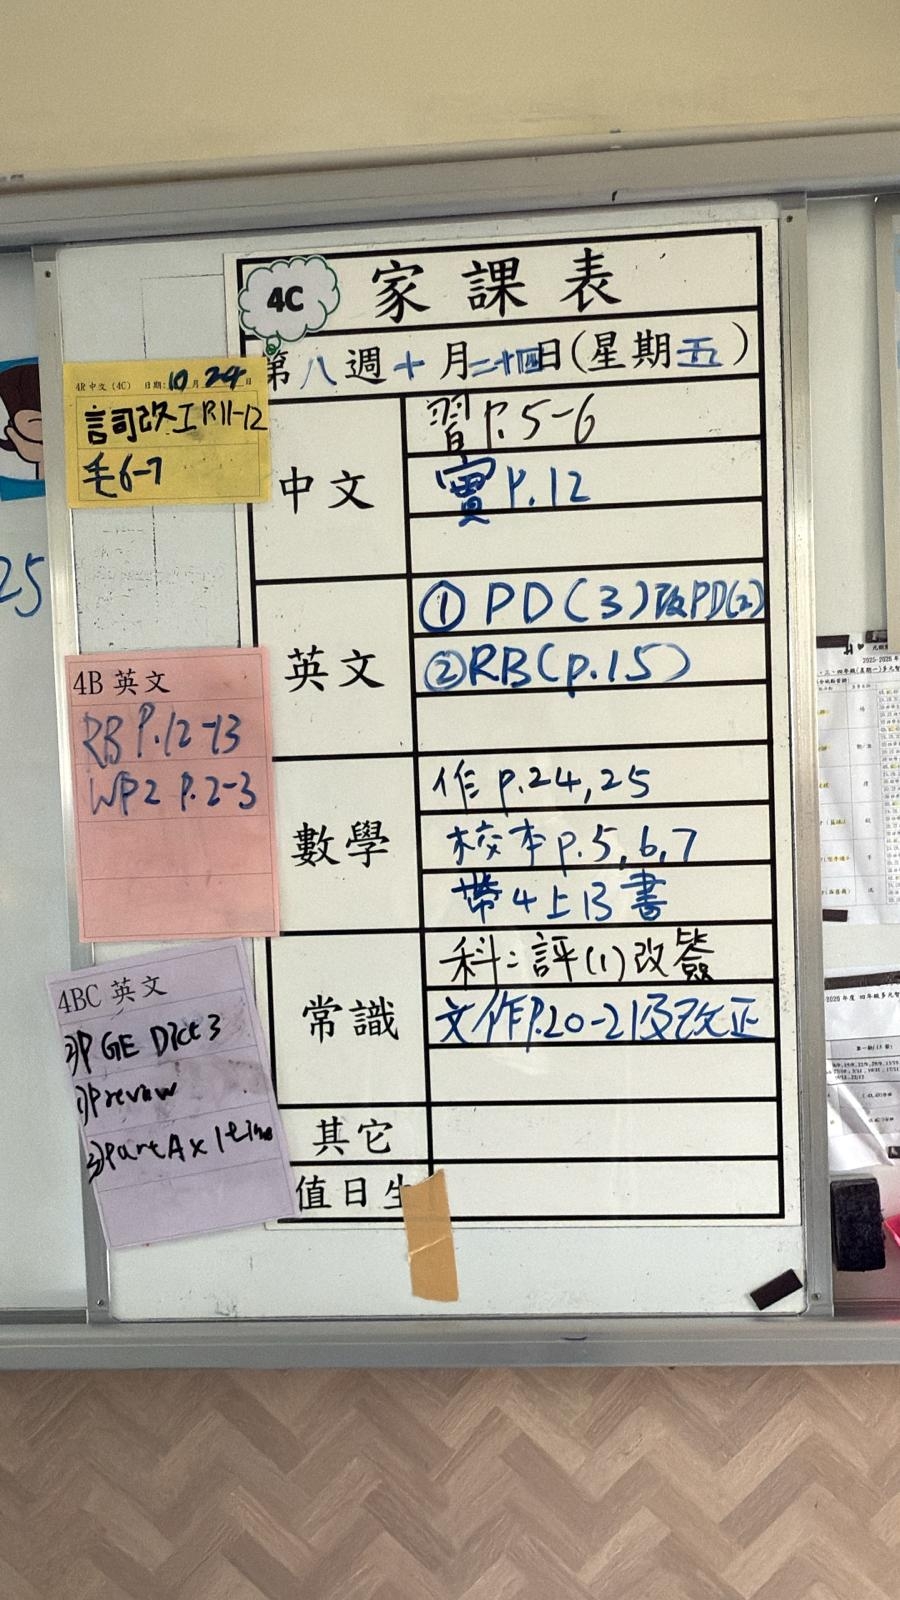 4C
家課表
第八週十月二十四日(星期五)
中文
習 P.5-6
實 P.12
英文
① PD(3)改PD(2)
② RB(p.15)
數學
作 p.24,25
校本 p.5,6,7
帶4上B書
常識
科:評(1)改簽
文作P.20-21及改正
其它
值日生
4R 中文 (4C) 日期:10月24日
詞改工P.11-12
毛6-7
4B 英文
RB P.12-13
WP2 P.2-3
4BC 英文
GE Dict 3
Part A x 1 time
25